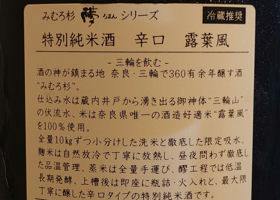 みむろ杉 ろまんシリーズ
冷蔵推奨
特別純米酒 辛口 露葉風
–三輪を飲む–
酒の神が鎮まる地 奈良・三輪で360有余年醸す酒
“みむろ杉”。
仕込み水は蔵内井戸から湧き出る御神体“三輪山”
の伏流水、米は奈良県唯一の酒造好適米“露葉風”
を100%使用。
全量10kgずつ小分けした洗米と徹底した限定吸水、
麹米は自然放冷で丁寧に放熱し、昼夜問わず徹底し
た品温管理、蒸米は全量手運び、醪工程では低温
長期発酵、上槽後は即座に瓶詰・火入れと、最大限
丁寧に醸した辛口タイプの特別純米酒です。